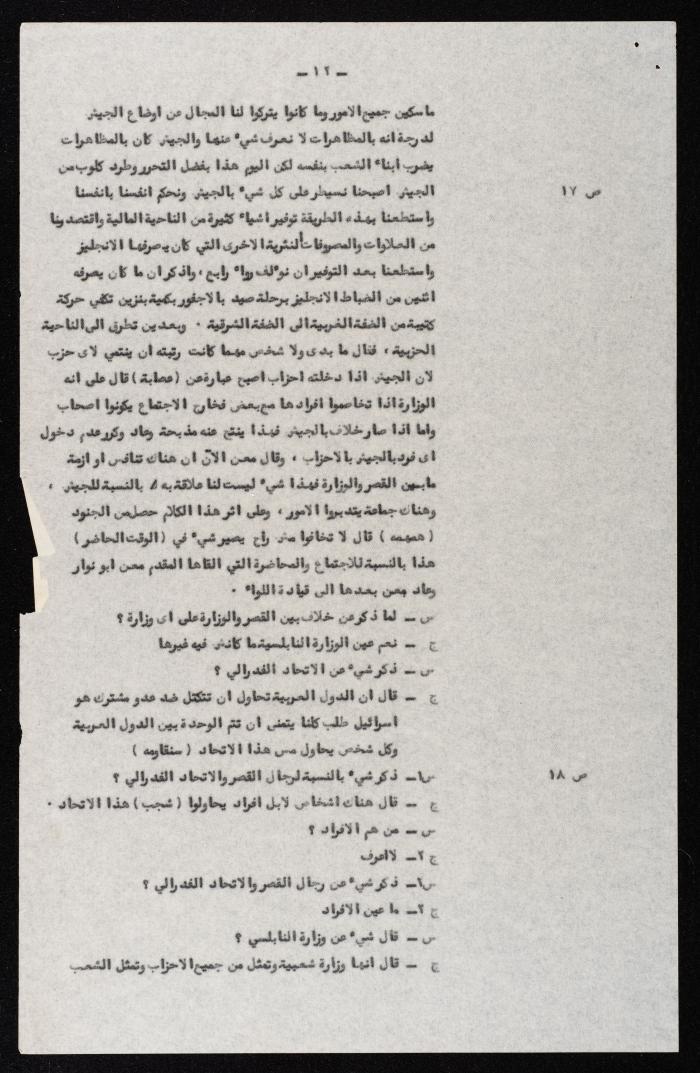 ـ ١٢ ـ
ماسكين جميع الامور وما كانوا يتركوا لنا المجال عن اوضاع الجيش
لدرجة انه بالمظاهرات لا نعرف شيء عنها والجيش كان بالمظاهرات
يضرب ابناء الشعب بنفسه لكن اليوم هذا بفضل التحرر وطرد كلوب من
الجيش اصبحنا نسيطر على كل شيء بالجيش ونحكم انفسنا بانفسنا
ص ١٧
واستطعنا بهذه الطريقة توفير اشياء كثيرة من الناحية المالية واقتصدونا
من العلاوات والمصروفات النثرية الاخرى التي كان يصرفها الانجليز
واستطعنا بعد التوفير ان نوٴلف رواء رابع ، واذكر ان ما كان يصرفه
اثنين من الضباط الانجليز برحلة صيد بالاجفور بكمية بنزين تكفي حركة
كتيبة من الضفة الغربية الى الضفة الشرقية ٠ وبعدين تطرق الى الناحية
الحزبية ، فقال ما بدى ولا شخص مهما كانت رتبته ان ينتمي لاى حزب
لان الجيش اذا دخلته احزاب اصبح عبارة عن (عصابة) قال على انه
الوزارة اذا تخاصموا افرادها مع بعض فخارج الاجتماع يكونوا اصحاب
واما اذا صار خلاف بالجيش فهذا ينتج عنه مذبحة وعاد وكرر عدم دخول
اى فرد بالجيش بالاحزاب ، وقال معن الآن ان هناك تنافس او ازمة
مابين القصر والوزارة فهذا شيء ليست لنا علاقة به بالنسبة للجيش ،
وهناك جماعة يتدبروا الامور ، وعلى اثر هذا الكلام حصل من الجنود
(همهمه) قال لا تخافوا مش راح يصير شيء في (الوقت الحاضر)
هذا بالنسبة للاجتماع والمحاضرة التي القاها المقدم معن ابو نوار
وعاد معن بعدها الى قيادة اللواء ٠
س ـ لما ذكر عن خلاف بين القصر والوزارة على اى وزارة ؟
ج ـ نعم عين الوزارة النابلسية ما كانش فيه غيرها
س ـ ذكر شيء عن الاتحاد الفدرالي ؟
ج ـ قال ان الدول العربية تحاول ان تتكتل ضد عدو مشترك هو
اسرائيل طلب كلنا يتمنى ان تتم الوحدة بين الدول العربية
وكل شخص يحاول مس هذا الاتحاد (سنقاومه)
س١ـ ذكر شيء بالنسبة لرجال القصر والاتحاد الفدرالي ؟
ص ١٨
ج ـ قال هناك اشخاص لابل افراد يحاولوا (شجب) هذا الاتحاد ٠
س ـ من هم الافراد ؟
ج ٢ـ لااعرف
س٢ـ ذكر شيء عن رجال القصر والاتحاد الفدرالي ؟
ج ٢ـ ما عين الافراد
س ـ قال شيء عن وزارة النابلسي ؟
ج ـ قال انها وزارة شعبية وتمثل من جميع الاحزاب وتمثل الشعب